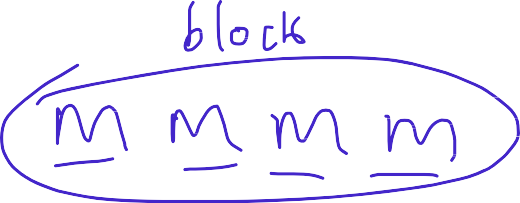 block
m m m m